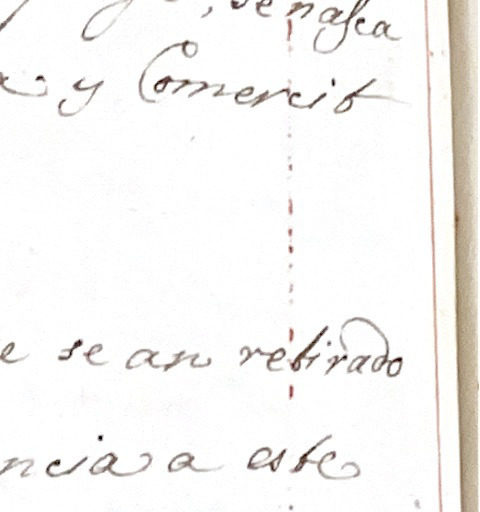 y Comercio
e se an retirado
ncia a este